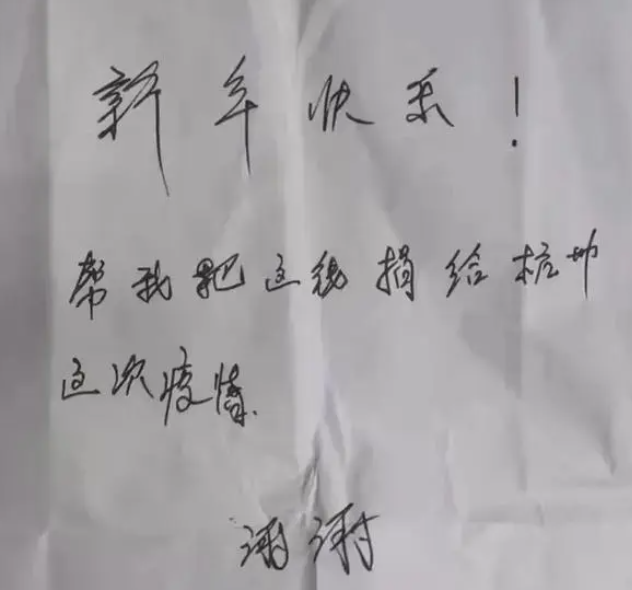 新年快乐！
帮我把这钱捐给杭州
这次疫情.
谢谢